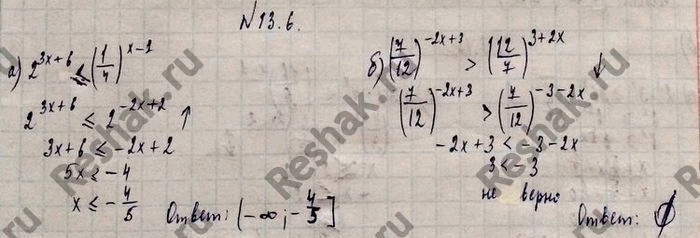 №13.6.
а) 2^{3x+6} ≤ (1/4)^{x-1}
2^{3x+6} ≤ 2^{-2x+2} ↑
3x+6 ≤ -2x+2
5x ≤ -4
x ≤ -4/5
Ответ: (-∞; -4/5]
б) (7/12)^{-2x+3} > (12/7)^{3+2x} ↓
(7/12)^{-2x+3} > (7/12)^{-3-2x}
-2x+3 < -3-2x
3 < -3
не верно
Ответ: ∅
Reshak.ru